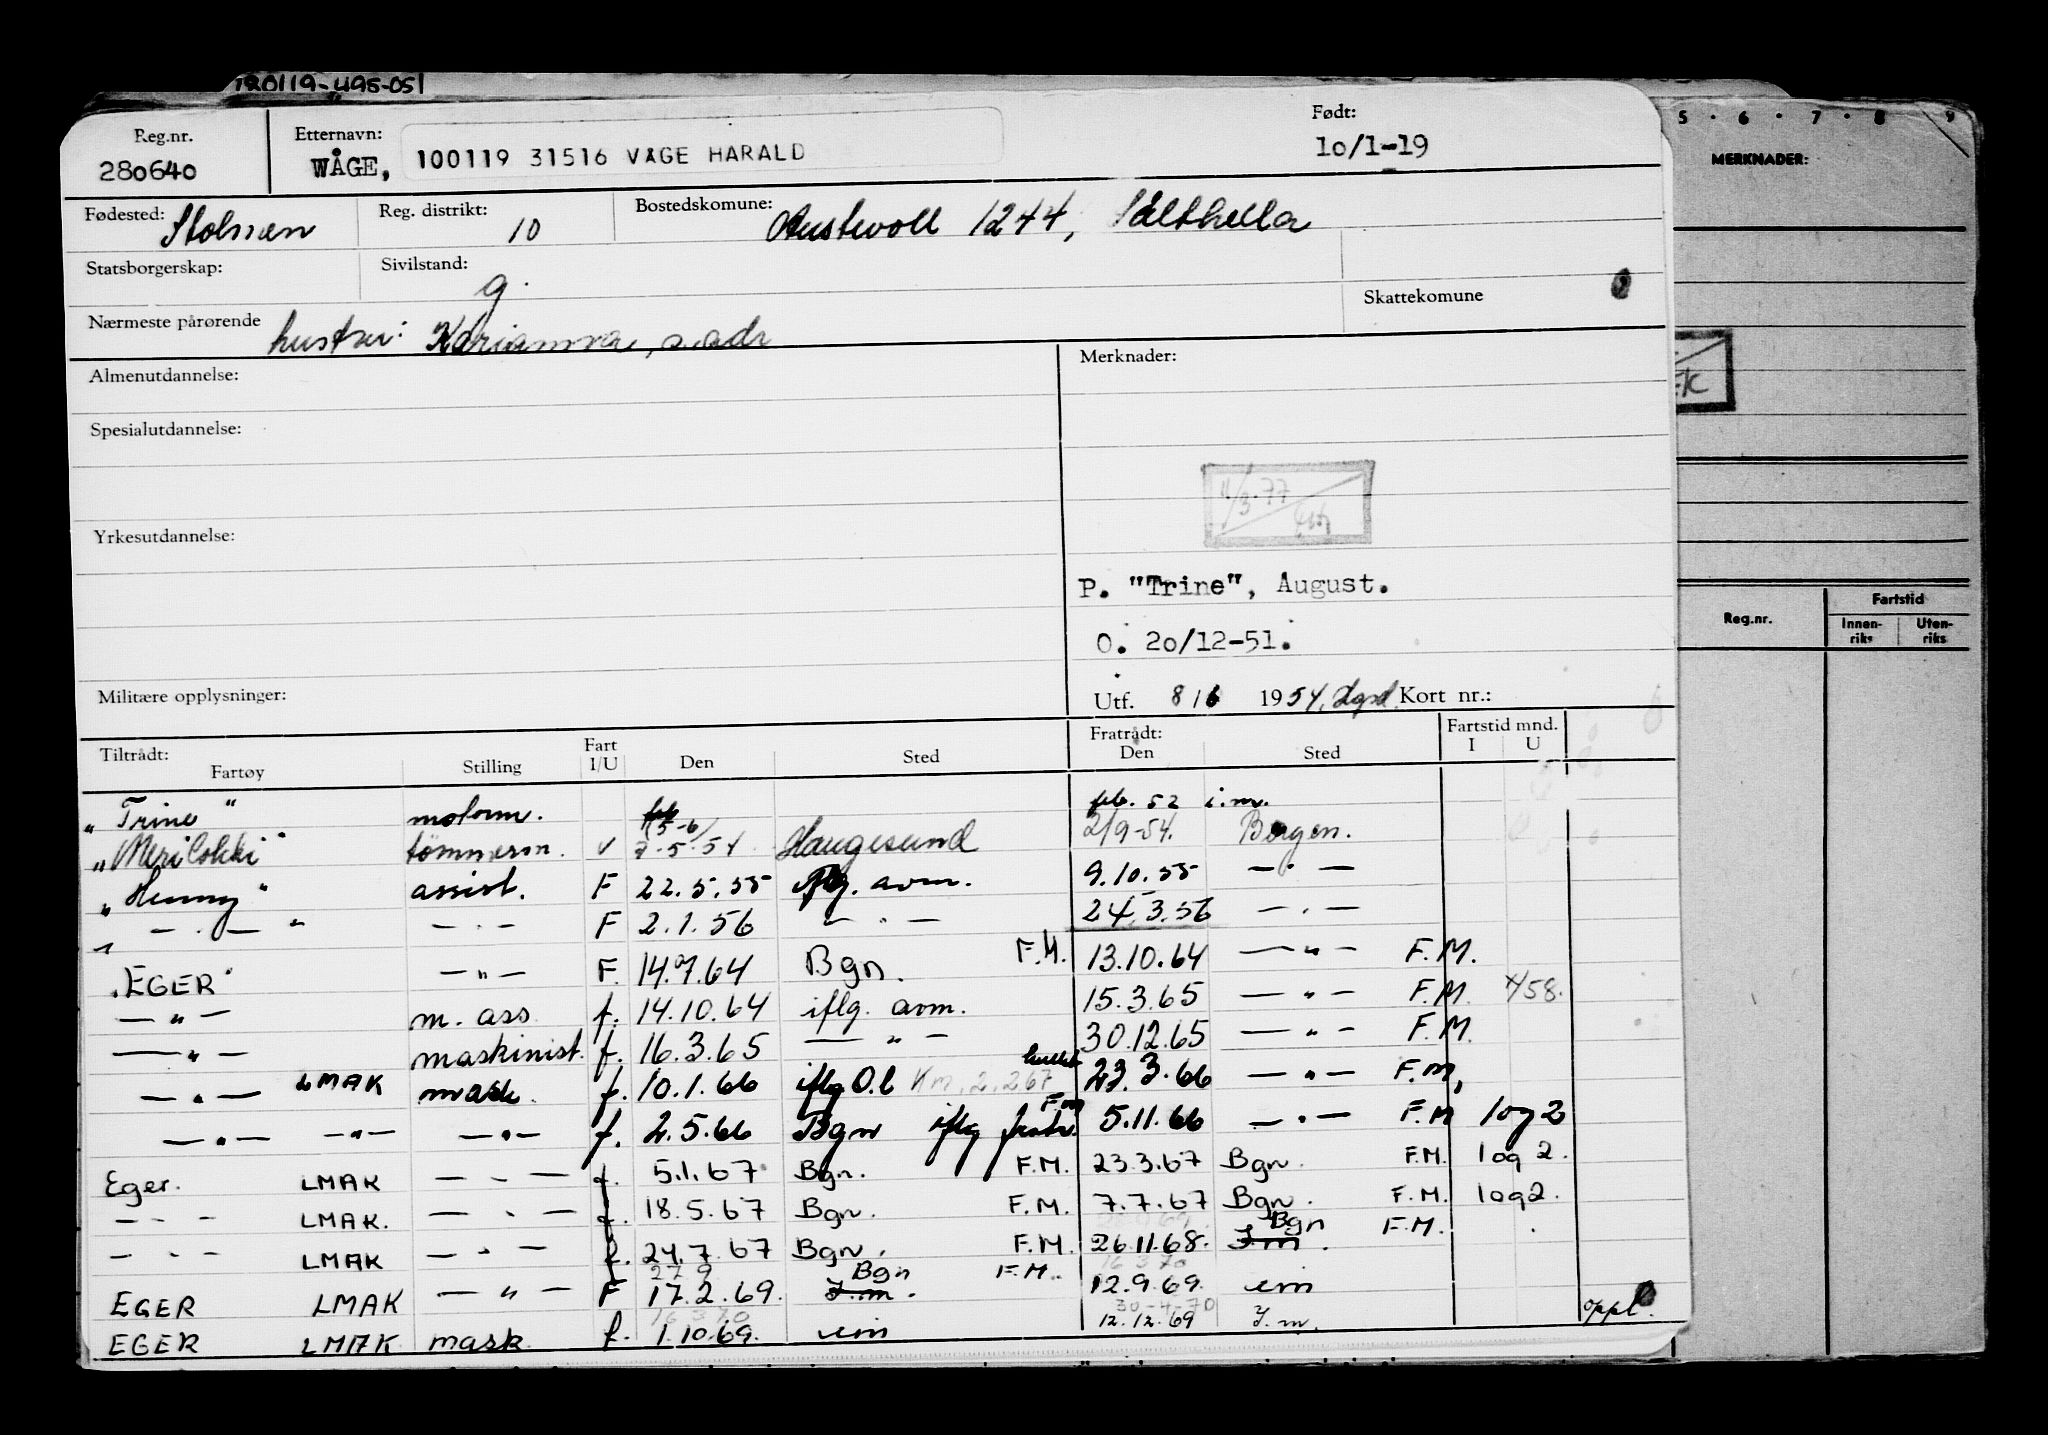 120119-495-051
Reg.nr. Etternavn: Født:
280640 WÅGE, 100119 31516 VÅGE HARALD 10/1-19
5 . 6 . 7 . 8 9
MERKNADER:
Fødested: Stolmen Reg. distrikt: 10 Bostedskomune: Austevoll 1244, Sålthella
Statsborgerskap: Sivilstand: g.
Skattekomune
Nærmeste pårørende hustru: Marianna, s. adr
Almenutdannelse: Merknader:
Spesialutdannelse:
4/3-77
Yrkesutdannelse:
P. "Trine", August.
O. 20/12-51.
Militære opplysninger: Utf. 8/6 1954, Hgsd. Kort nr.:
Reg.nr. Fartstid
Innen-riks Uten-riks
Tiltrådt: Fart Fratrådt: Fartstid mnd.
Fartøy Stilling I/U Den Sted Den Sted I U
"Trine" motorm. feb. 52 i.m.
"Merilokki" tømmerm. v (5-6) 7.5.54 Haugesund 2/9-54. Bergen.
"Henny" assist. F 22.5.55 iflg. avm. 9.10.55 — " —
" — " — " — " — F 2.1.56 — " — 24.3.56 — " —
"EGER" — " — F. 14.7.64 Bgn. F.M. 13.10.64 — " — F.M.
— " — m. ass f. 14.10.64 iflg. avm. 15.3.65 — " — F.M. 4/58.
— " — maskinist. f. 16.3.65 — " — 30.12.65 — " — F.M.
— " — LMAK mask. f. 10.1.66 iflg O.l 23.3.66 — " — F.M.
— " — — " — — " — f. 2.5.66 Bgn iflg F.M 5.11.66 — " — F.M 1 og 2
Eger. LMAK — " — f. 5.1.67 Bgn. F.M. 23.3.67 Bgn. F.M. 1 og 2.
— " — LMAK. — " — f. 18.5.67 Bgn. F.M. 7.7.67 Bgn. F.M. 1 og 2.
— " — LMAK — " — f. 24.7.67 Bgn. F.M. 26.11.68. I.m. Bgn F.M.
EGER LMAK — " — F 17.2.69. I.m. Bgn F.M. 12.9.69. um
EGER LMAK mask. f. 1.10.69. um 30-4-70 12.12.69 I.m. oppl.